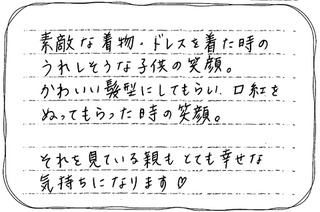 素敵な着物・ドレスを着た時の
うれしそうな子供の笑顔。
かわいい髪型にしてもらい、口紅を
ぬってもらった時の笑顔。
それを見ている親もとても幸せな
気持ちになります♡